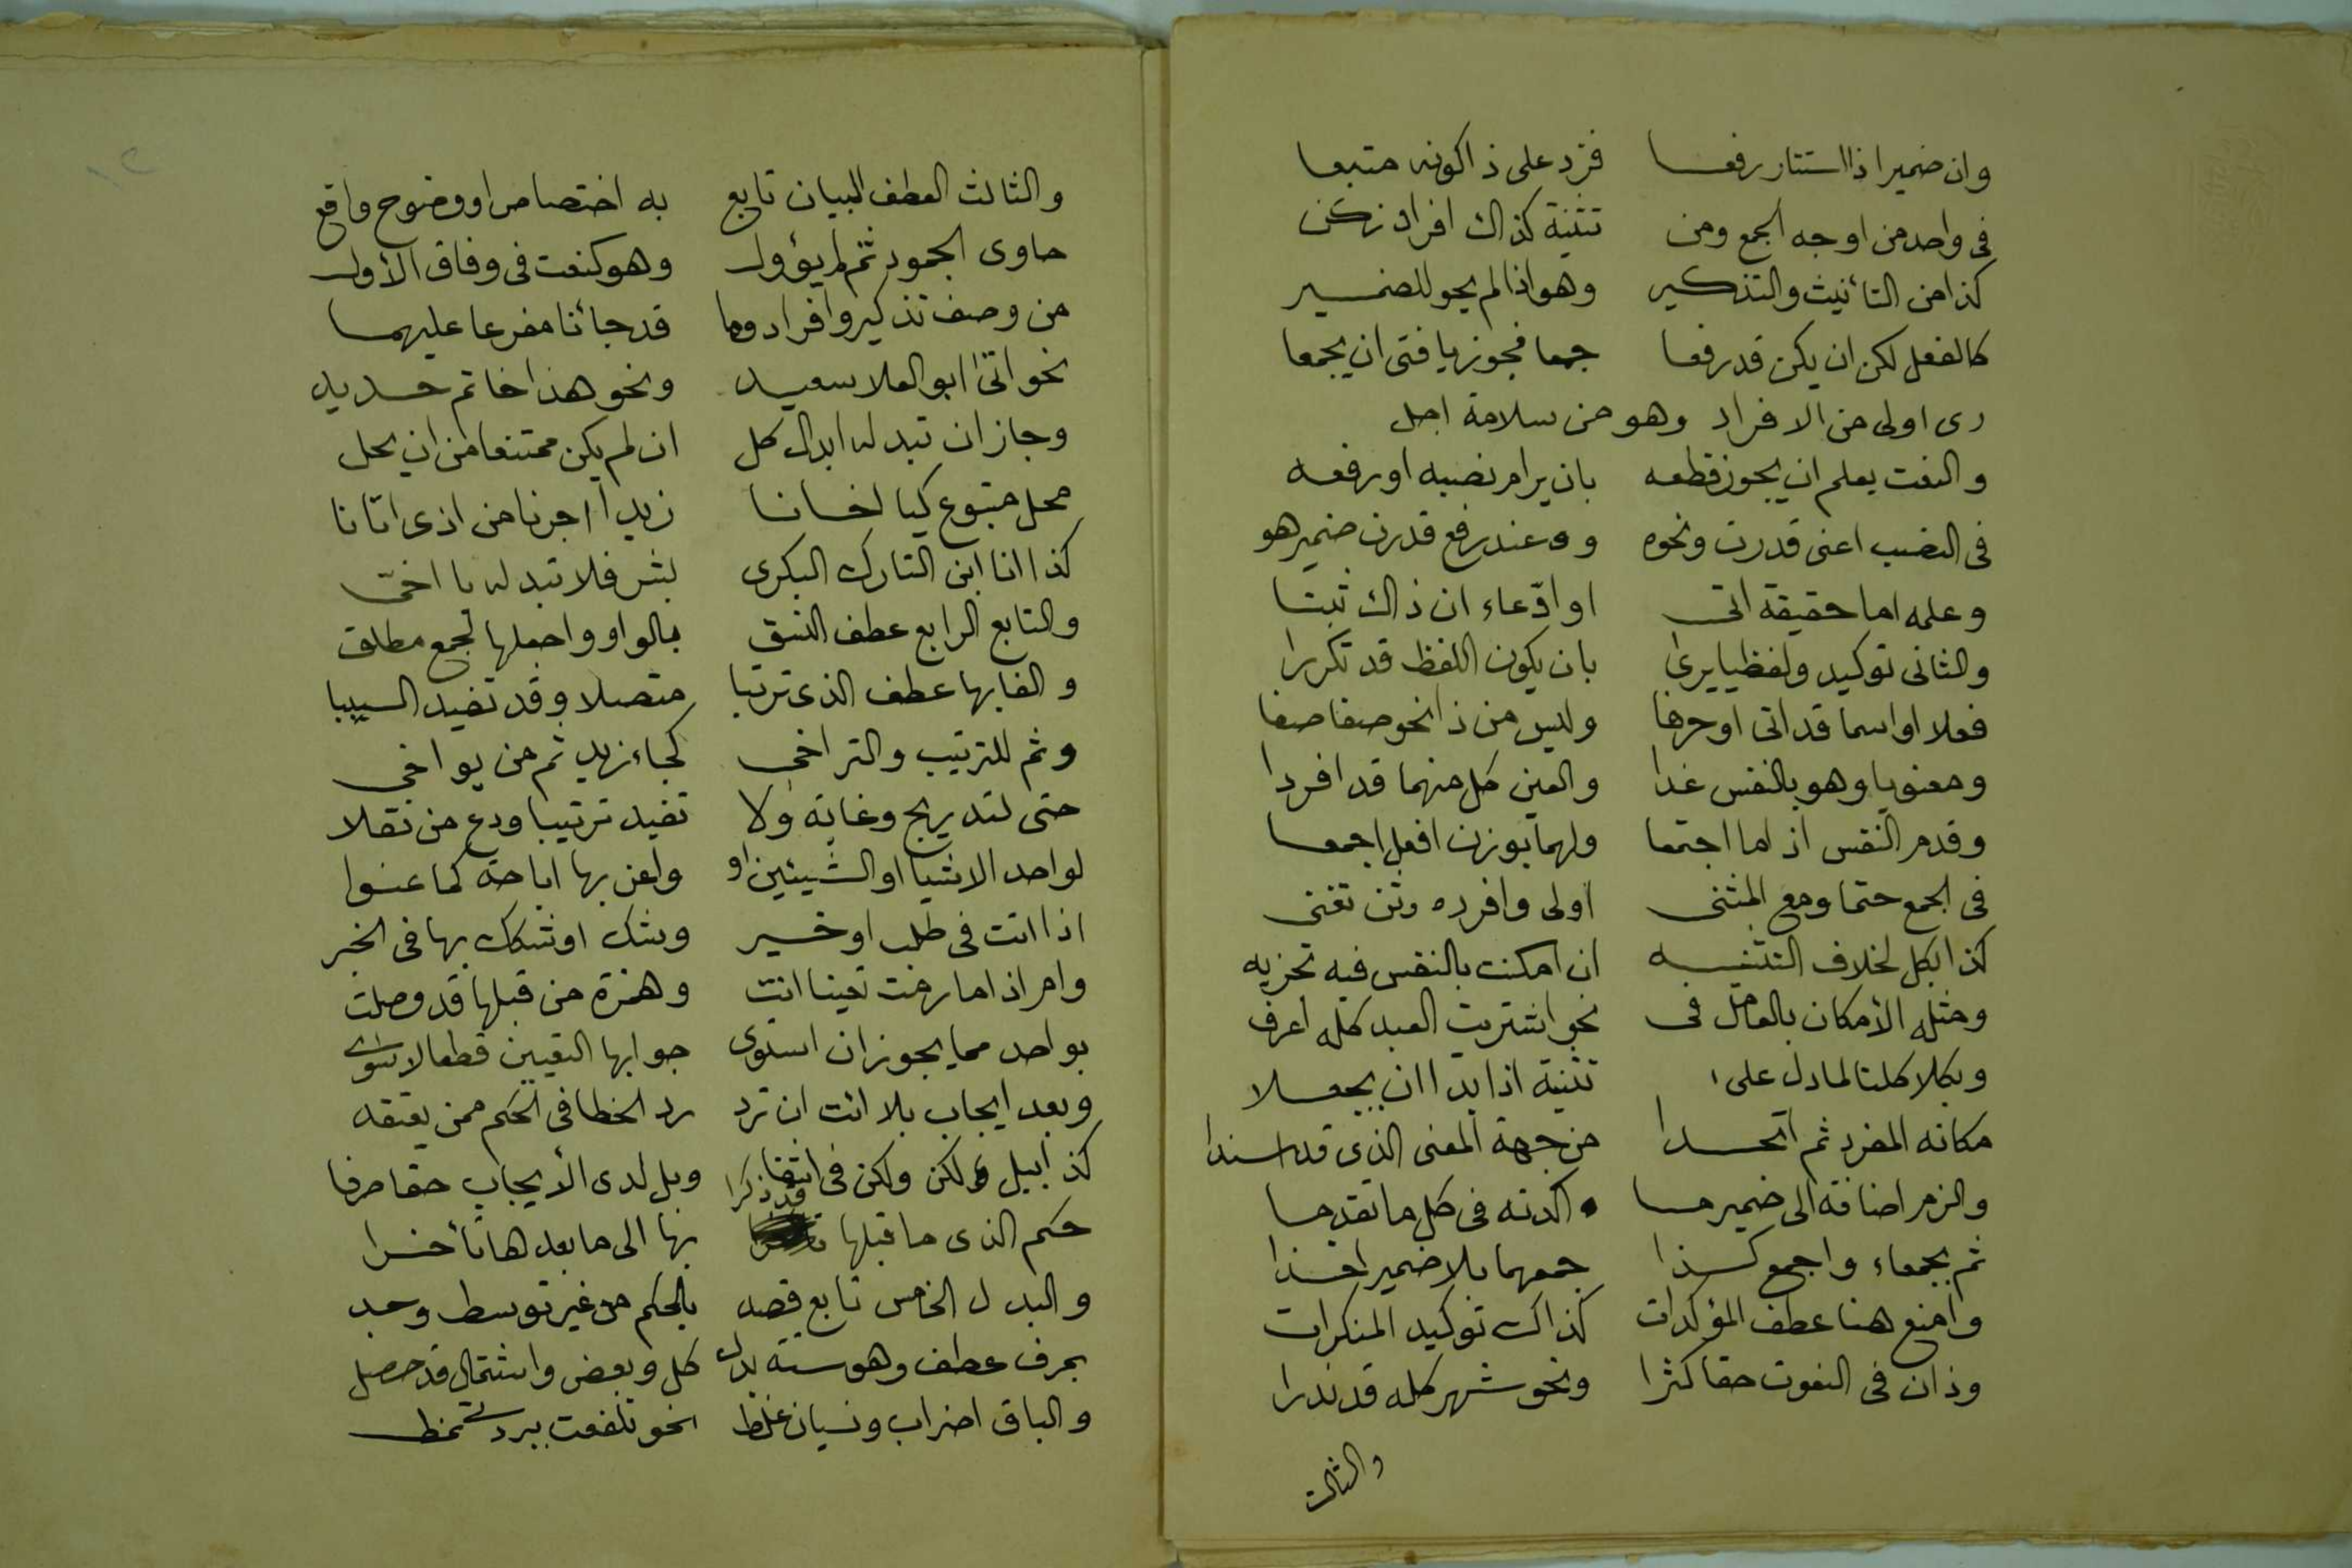 وان ضميرا ذا استتار رفعا فزد على ذا كونه متبعا
فى واحد من اوجه الجمع ومن تثنية كذاك افراد زكن
كذا من التأنيث والتذكير وهو اذا لم يحو للضمير
كالفعل لكن ان يكن قد رفعا جمعا فجوز يا فتى ان يجمعا
رى اولى من الافراد وهو من سلامة اجل
والنعت يعلم ان يجوز قطعه بان يرام نصبه او رفعه
فى النصب اعنى قدرت ونحوه وعند رفع قدرن ضمير هو
وعلمه اما حقيقة اتى او ادّعاء ان ذاك ثبتا
والثانى توكيد ولفظيا يرى بان يكون اللفظ قد تكررا
فعلا او اسما قد اتى او حرفا وليس من ذا نحو صفا صفا
ومعنويا وهو بالنفس غدا والعين كل منهما قد افردا
وقدم النفس اذا ما اجتمعا ولهما بوزن افعل اجمعا
فى الجمع حتما ومع المثنى اولى وافرده وثن تغنى
كذا بكل لخلاف التثنيه ان امكنت بالنفس فيه تجزيه
ومثله الأمكان بالعامل فى نحو اشتريت العبد كله اعرف
وبكلا كلتا لما دل على تثنية اذا بدا ان يجعلا
مكانه المفرد ثم اتحدا من جهة المعنى الذى قد اسندا
والزم اضافة الى ضمير ما اكدته فى كل ما تقدما
ثم بجمعاء واجمع كذا جمعهما بلا ضمير اخذا
وامنع هنا عطف المؤكدات كذاك توكيد المنكرات
وذان فى النعوت حقا كثرا ونحو شهر كله قد ندرا
والثالث
والثالث العطف البيان تابع به اختصاص او وضوح واقع
حاوى الجمود ثم لم يؤول وهو كنعت فى وفاق الأول
من وصف تذكير وافراد وما قد جائنا مفرعا عليهما
نحو اتى ابو العلا سعيد ونحو هذا خاتم حديد
وجاز ان تبدله ابدال كل ان لم يكن ممتنعا من ان يحل
محل متبوع كيا اخانا زيدا اجرنا من اذى اتانا
كذا انا ابن التارك البكرى بشر فلا تبدله يا اخىّ
والتابع الرابع عطف النسق بالواو واجعلها لجمع مطلق
والفا بها عطف الذى ترتبا متصلا وقد تفيد السببا
وثم للترتيب والتراخى كجاء زيد ثم من يواخى
حتى لتدريج وغاية ولا تفيد ترتيبا ودع من نقلا
لواحد الاشيا او الشيئين او واعن بها اباحة كما عنوا
اذا اتت فى طلب او خير وشك او شكك بها فى الخبر
وام اذا ما رمت تعينا اتت وهمزة من قبلها قد وصلت
بواحد مما يجوز ان استوى جوابها التعيين قطعا لا سوى
وبعد ايجاب بلا ائت ان ترد رد الخطا فى الحكم ممن يعتقد
كذا بيل ولكن ولكن فى انتفا وبل لدى الأيجاب حقا صرفا
حكم الذى ما قبلها قد ذكرا بها الى ما بعدها تأخرا
والبدل الخامس تابع قصد بالحكم من غير توسط وجد
بحرف عطف وهو ستة بدل كل وبعض واشتمال قد حصل
والباق اضراب ونسيان غلط نحو تلفعت ببردتى نمط